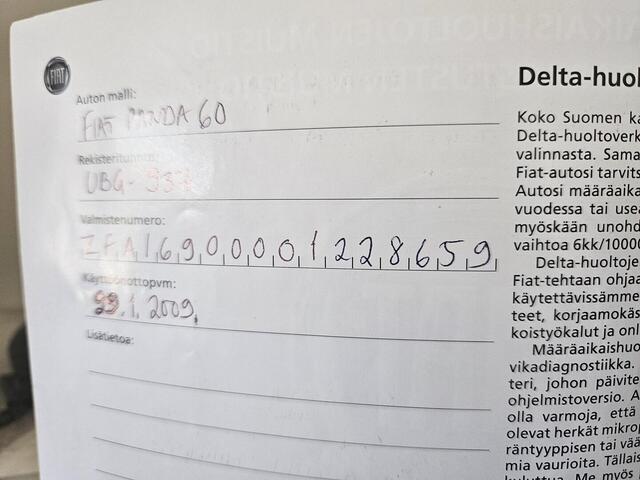 FIAT
Auton malli:
FIAT PANDA 60
Rekisteritunnus:
UBG-937
Valmistenumero:
ZFA16900001228659
Käyttöönottopvm:
.1.2009
Lisätietoa:
Delta-huol
Koko Suomen ka
Delta-huoltoverk
valinnasta. Sama
Fiat-autosi tarvits
Autosi määräaika
vuodessa tai usea
myöskään unohd
vaihtoa 6kk/10000
Delta-huoltoje
Fiat-tehtaan ohjaa
käytettävissämme
teet, korjaamokäs
koistyökalut ja onl
Määräaikaishuo
vikadiagnostiikka.
teri, johon päivite
ohjelmistoversio. A
olla varmoja, että
olevat herkät mikrop
räntyyppisen tai vää
mia vaurioita. Tällais
kuluttua. Me myös